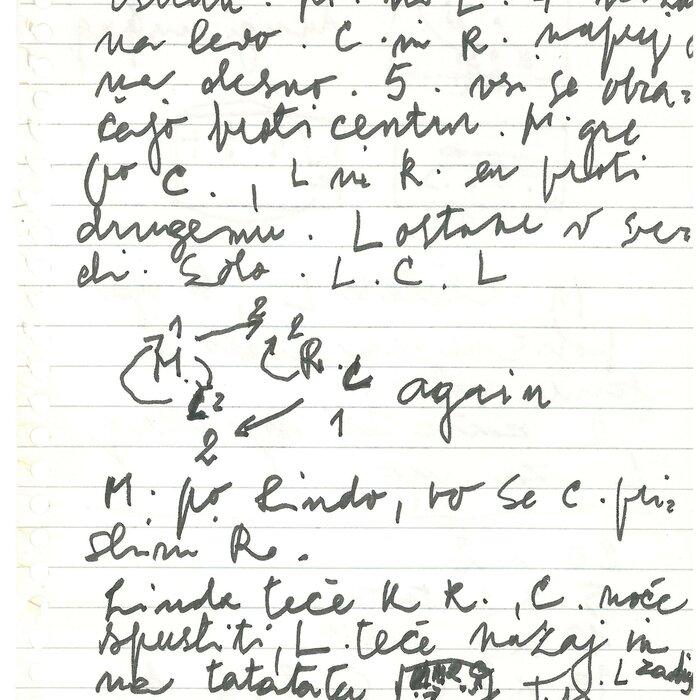 na levo. C. in R. napej
na desno. 5. vsi se obra-
čajo proti centru. M. gre
po C., L in R. en proti
drugemu. L ostane v sre-
di. Solo. L. C. L
1 2 2
M. R. C again
L 2
2 1
M. po Lindo, vo se C. pri-
sluni R.
Linda teče k R., C. noče
spustiti, L. teče nazaj in
na tatatata